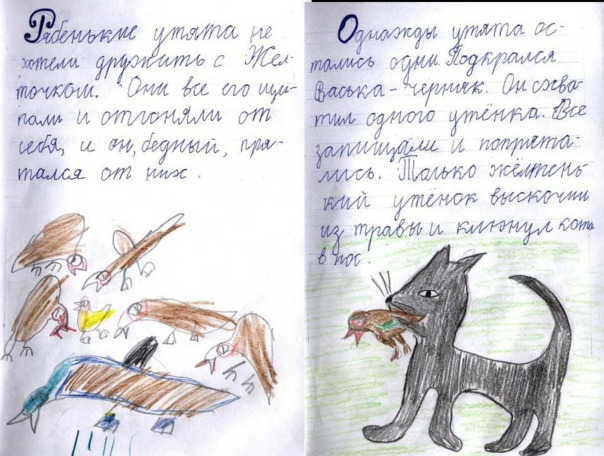 Рябенькие утята не
хотели дружить с Жел-
точком. Они все его щи-
пали и отгоняли от
себя, и он, бедный, пря-
тался от них.
Однажды утята ос-
тались одни. Подкрался
Васька-черныак. Он схва-
тил одного утёнка. Все
запищали и попрята-
лись. Только жёлтень-
кий утёнок выскочил
из травы и клюнул кота
в нос.